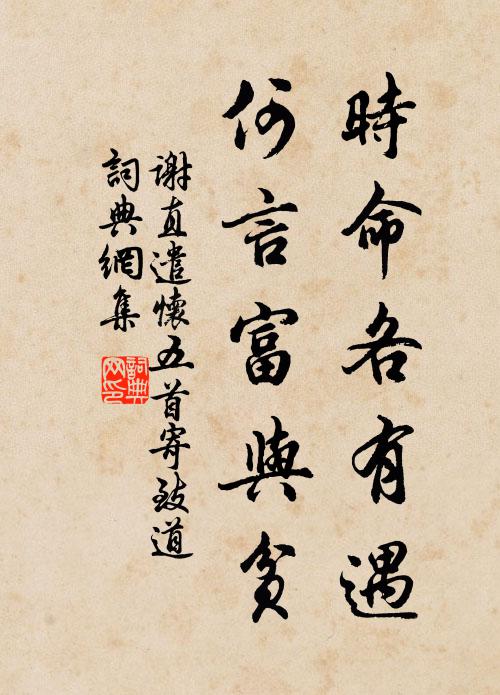 時命各有遇
何言富與貧
谢直遣懷五首寄致道
詞典網集
詞典网印